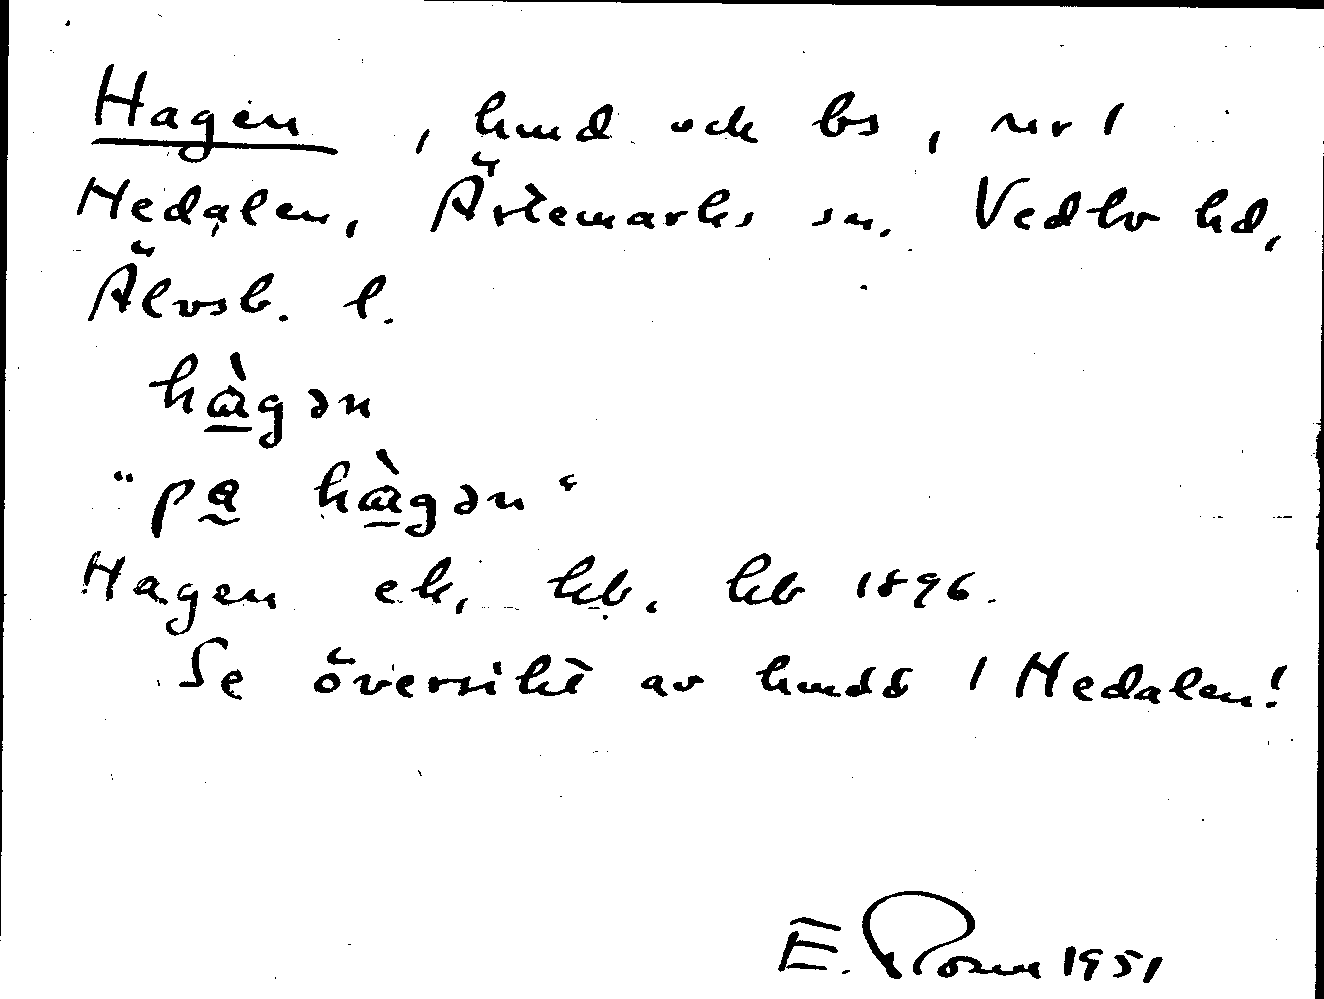 Hagen, hmd och bs, nr 1
Nedalen, Ärtemarks sn. Vedbo hd,
Älvsb. l.
hàgən
"pa hàgən"
Hagen ek, kb. kb 1896.
Se översikt av hmdd / Nedalen!
E. Rosur 1951